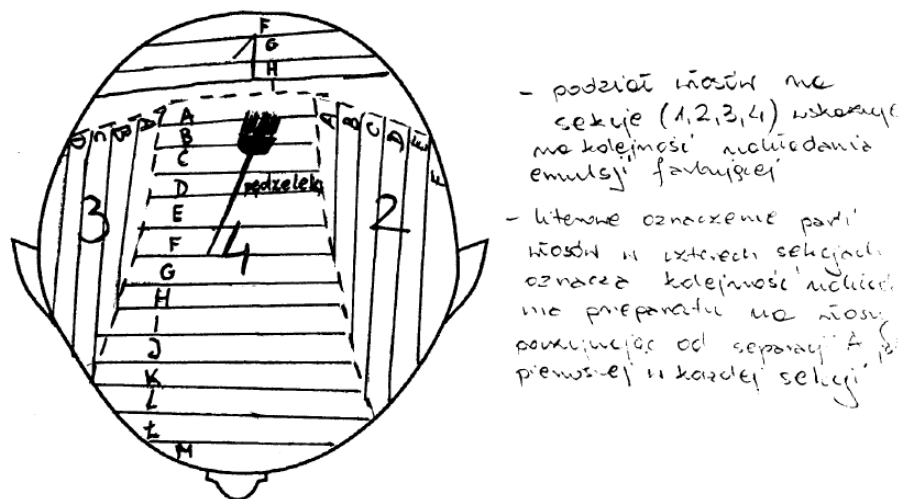 F
G
1
H
I
A
B
C
D
pędzelek
E
F
4
G
H
I
J
K
L
Ł
M
3
D
C
B
A
2
A
B
C
D
E
F
- podział włosów na
sekcje (1,2,3,4) wskazuje
na kolejność nakładania
emulsji farbującej
- literowe oznaczenie partii
włosów w czterech sekcjach
oznacza kolejność
nia preparatu na włosy
od separacji A
pierwszej w każdej sekcji